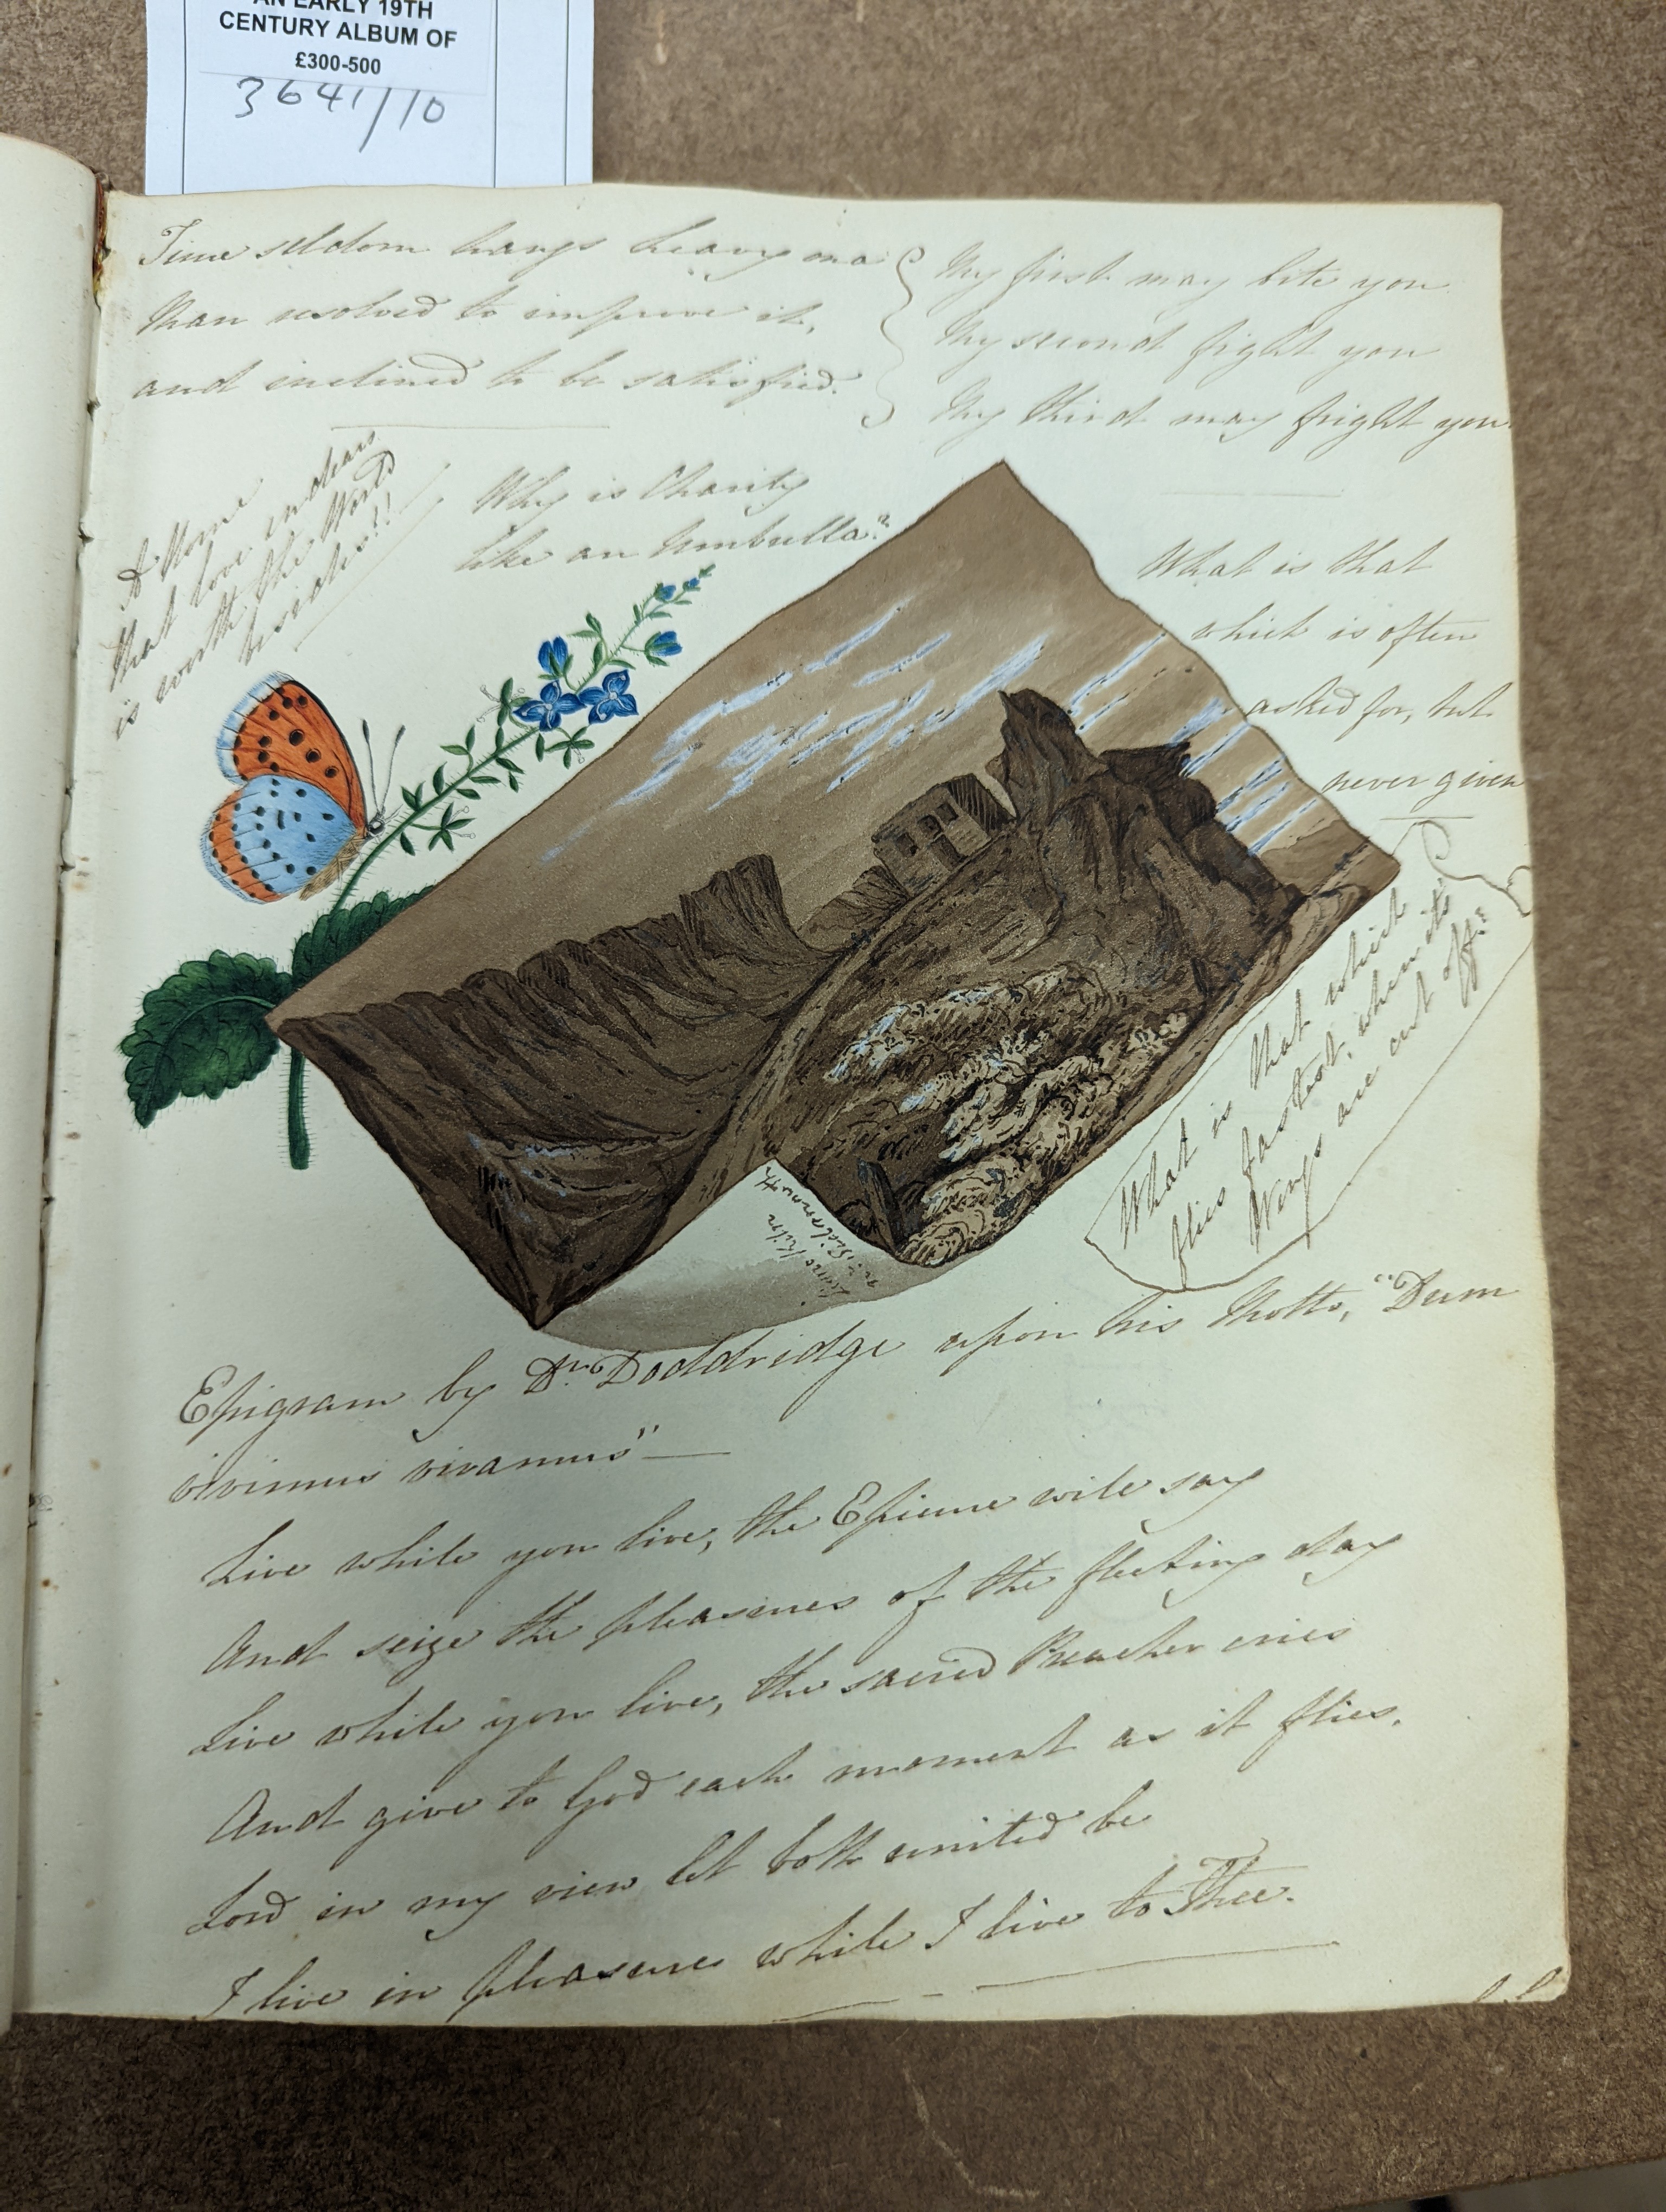 AN EARLY 19TH
CENTURY ALBUM OF
£300-500
3641/10
Time seldom hangs heavy on a
Man resolved to improve it,
and inclined to be satisfied.
My first may bite you
My second fight you
My third may fright you
A Home
that love endears
is worth the World
besides!!
Why is Charity
like an Umbrella?
What is that
which is often
asked for, but
never given
What is that which
flies fastest, when its
Wings are cut off?
Lime Kiln
nr. Sidmouth
Epigram by Dr. Dooldridge upon his Motto, "Dum
vivimus vivamus"
Live while you live, the Epicure wile say
And seize the pleasures of the fleeting day
Live while you live, the sacred Preacher cries
And give to God each moment as it flies.
Lord in my view let both united be
I live in pleasure while I live to Thee.